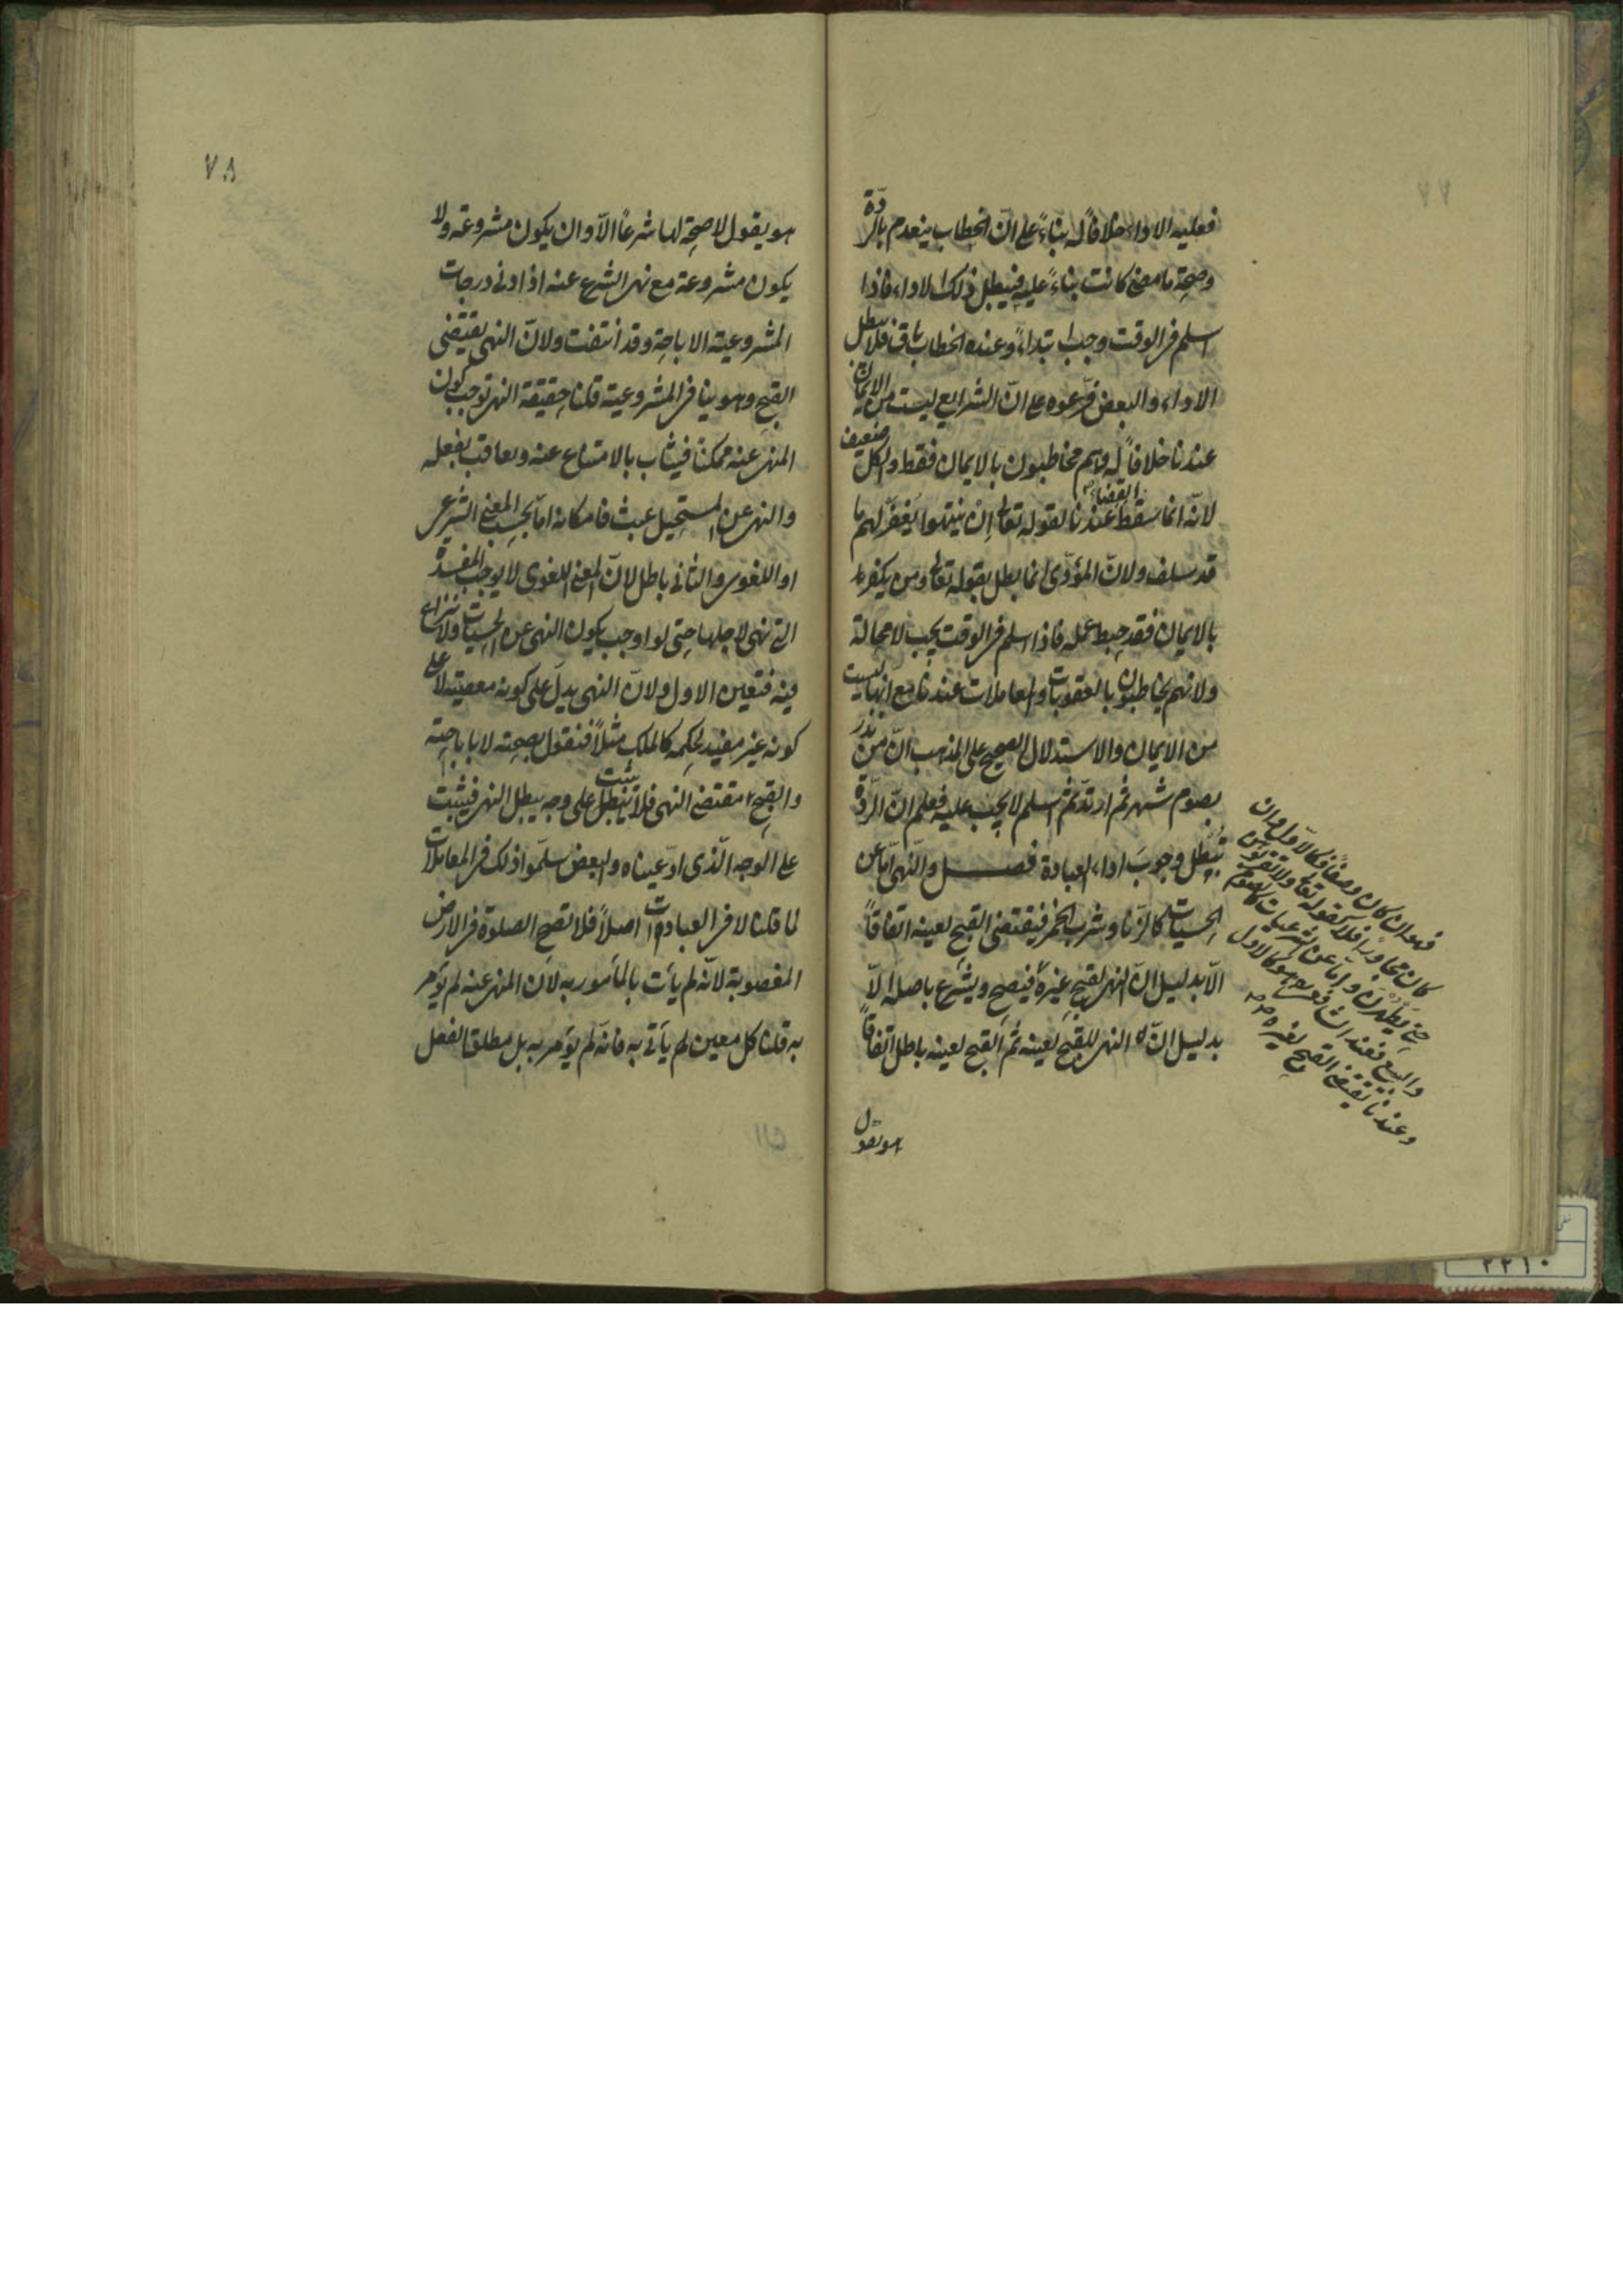 فعليه الاداء خلافًا له بناءً على انّ الخطاب ينعدم بالردّة
وصحة ما مضى كانت بناءً عليه فيبطل ذلك الاداء فاذا
اسلم فى الوقت وجب ابتداءً وعنده الخطاب باق فلا يبطل
الاداء والبعض فرّعوه على انّ الشرايع ليست من الايمان
عندنا خلافًا له وهم مخاطبون بالايمان فقط والكل ضعيف
لانّه انما سقط القضاء عندنا لقوله تعالى ان ينتهوا يغفر لهم ما
قد سلف ولانّ المؤدّى انما بطل بقوله تعالى ومن يكفر
بالايمان فقد حبط عمله فاذا اسلم فى الوقت يجب لا محالة
ولانهم يخاطبون بالعقوبات والمعاملات عندنا مع انها ليست
من الايمان والاستدلال الصحيح على المذهب انّ من نذر
بصوم شهر ثم ارتدّ ثم اسلم لا يجب عليه فعلم انّ الردّة
تبطل وجوب اداء العبادة فصل والنهى امّا عن
الحسيات كالزنا وشرب الخمر فيقتضى القبح لعينه اتفاقًا
الّا بدليل انّ النهى لقبح غيره فيصح ويشرع باصله الّا
بدليل انّ النهى للقبح لعينه ثم القبح لعينه باطل اتفاقًا
فهو ان كان وصفًا فكالاوّل وان
كان مجاورًا فلا كقوله تعالى ولا تقربوهن
حتى يطهرن وامّا عن الشرعيات كالصوم
والبيع فعند الشافعى هو كالاول
وعندنا يقتضى القبح لغيره
هو يقول
٧٨
هو يقول لا صحة لها شرعًا الّا وان يكون مشروعة ولا
يكون مشروعة مع نهى الشرع عنه اذ ادنى درجات
المشروعية الاباحة وقد انتفت ولانّ النهى يقتضى
القبح وهو ينافى المشروعية قلنا حقيقة النهى توجب كون
المنهى عنه ممكنًا فيثاب بالامتناع عنه ويعاقب بفعله
والنهى عن المستحيل عبث فامكانه امّا بحسب المعنى الشرعى
او اللغوى والثانى باطل لانّ المعنى اللغوى لا يوجب المفسدة
التى نهى لاجلها حتى لو اوجب يكون النهى عن الحسيات ولا نزاع
فيه فتعين الاول ولانّ النهى يدلّ على كونه معصية لا على
كونه غير مفيد لحكمه كالملك مثلًا فنقول بصحته لا باباحته
والقبح مقتضى النهى فلا يثبت على وجه يبطل النهى فيثبت
على الوجه الّذى ادّعيناه والبعض سلّموا ذلك فى المعاملات
لما قلنا لا فى العبادات اصلًا فلا تصح الصلوة فى الارض
المغصوبة لانّه لم يأت بالمأمور به لان المنهى عنه لم يؤمر
به قلنا كل معين لم يأتى به فانّه لم يؤمر به بل مطلق الفعل
٢٢١٠